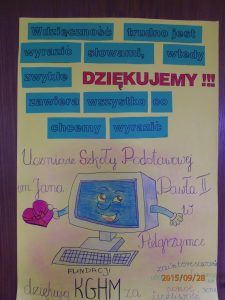 Wdzięczność trudno jest
wyrazić słowami, wtedy
zwykle DZIĘKUJEMY !!!
zawiera wszystko co
chcemy wyrazić
Uczniowie Szkoły Podstawowej
im Jana Pawła II
w
Półgrzymce
FUNDACJI
dziękują KGHM za
zainteresowanie
pomoc
2015/09/28